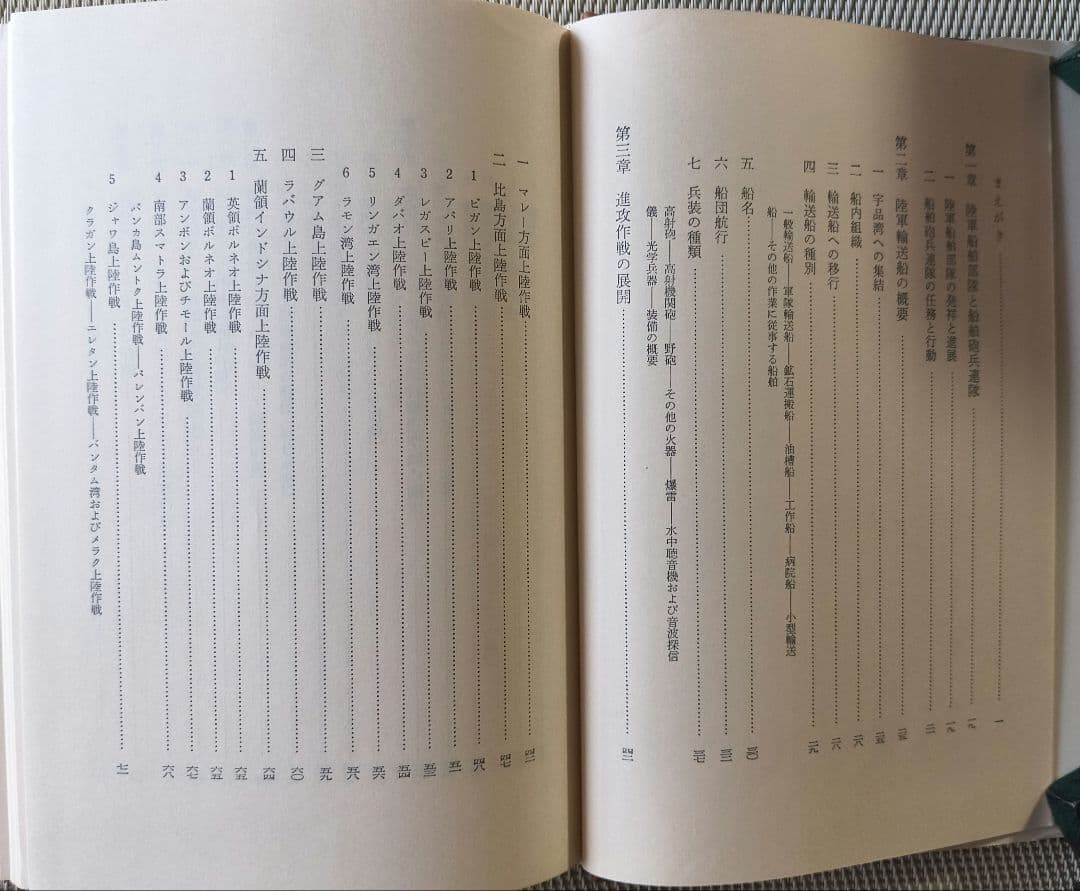 まえがき……一
第一章 陸軍船舶部隊と船舶砲兵連隊……一九
一 陸軍船舶部隊の発祥と進展……一九
二 船舶砲兵連隊の任務と行動……二一
第二章 陸軍輸送船の概要……二五
一 宇品湾への集結……二五
二 船内組織……二八
三 輸送船への移行……二八
四 輸送船の種別……二九
一般輸送船――軍隊輸送船――鉱石運搬船――油槽船――工作船――病院船――小型輸送
船――その他の作業に従事する船舶
五 船名……三〇
六 船団航行……三三
七 兵装の種類……三七
高射砲――高射機関砲――野砲――その他の火器――爆雷――水中聴音機および音波探信
儀――光学兵器――装備の概要
第三章 進攻作戦の展開……四二
一 マレー方面上陸作戦……四二
二 比島方面上陸作戦……四七
1 ビガン上陸作戦……四八
2 アパリ上陸作戦……五一
3 レガスピー上陸作戦……五三
4 ダバオ上陸作戦……五四
5 リンガエン湾上陸作戦……五六
6 ラモン湾上陸作戦……五八
三 グアム島上陸作戦……五九
四 ラバウル上陸作戦……六〇
五 蘭領インドシナ方面上陸作戦……六四
1 英領ボルネオ上陸作戦……六五
2 蘭領ボルネオ上陸作戦……六五
3 アンボンおよびチモール上陸作戦……六七
4 南部スマトラ上陸作戦……六八
バンカ島ムントク上陸作戦――パレンバン上陸作戦
5 ジャワ島上陸作戦……七一
クラガン上陸作戦――エレタン上陸作戦――バンタム湾およびメラク上陸作戦